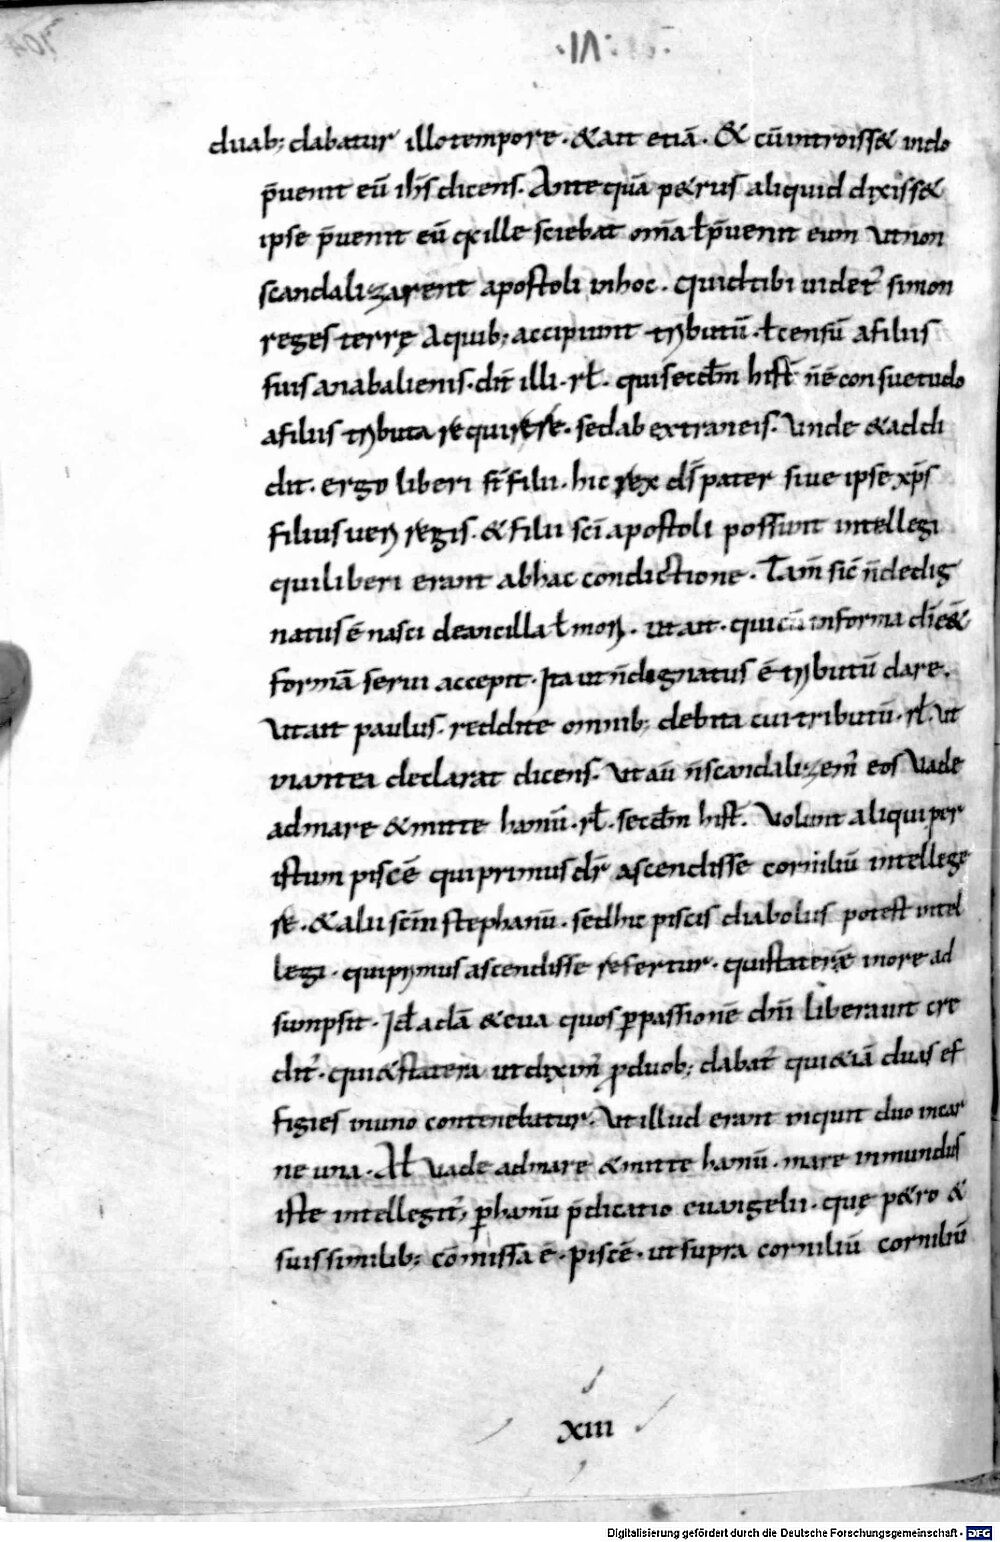 duab; dabatur illo tempore. &ait etiā. & cū introiss& indo
p̄uenit eū ih̄s dicens. Antequā p&rus aliquid dixiss&
ipse p̄uenit eū q̢ ille sciebat om̄a ł p̄uenit eum ut non
scandalizarent apostoli in hoc. quid tibi uidet͛ simon
reges terrę A quib; accipiunt tributū. ł censū a filiis
suis an ab alienis. dn̄t illi. rł. qui secd̄m hist̄ n̄ē consuetudo
a filiis tributa requirere. sed ab extraneis. unde &addi
dit. ergo liberi st̄ filii. hic rex dſ̄ pater siue ipse xp̄s
filius ueri regis. & filii sc̄i apostoli possunt intellegi
qui liberi erant ab hac condictione. Tam̄ sic̄ n̄ dedig
natus ē nasci de ancilla ł mori. ut ait. qui cū in forma dī ee&
formā serui accepit. Ita ut n̄ dignatus ē tributū dare.
Ut ait paulus. reddite omnib; debita cui tributū. rł. ut
in antea declarat dicens. Ut aū n̄ scandalizem͛ eos Uade
ad mare &mitte hamū. rł. secd̄m hist̄. Uolunt aliqui per
istum piscē qui primus dr̄ ascendisse corniliū intellege
re. &alii sc̄m stephanū. sed hic piscis diabolus potest intel
legi. qui primus ascendisse refertur. qui staterē in ore ad
sumpsit. Id̄ adā &eua quos p̱ passionē dn̄i liberaunt cre
dit͛. quia statera ut dixim͛ p̱ duob; dabat͛ qui &iā duas ef
figies in uno continebatur. Ut illud erant inquit duo in car
ne una. Ał Uade ad mare &mitte hamū. mare in mundus
iste intellegit͛, p̱ hamū p̄dicatio euangelii. quę p&ro &
suis similib; cōmissa ē. piscē. ut supra corniliū corniliū
xiii
Digitalisierung gefördert durch die Deutsche Forschungsgemeinschaft - DFG